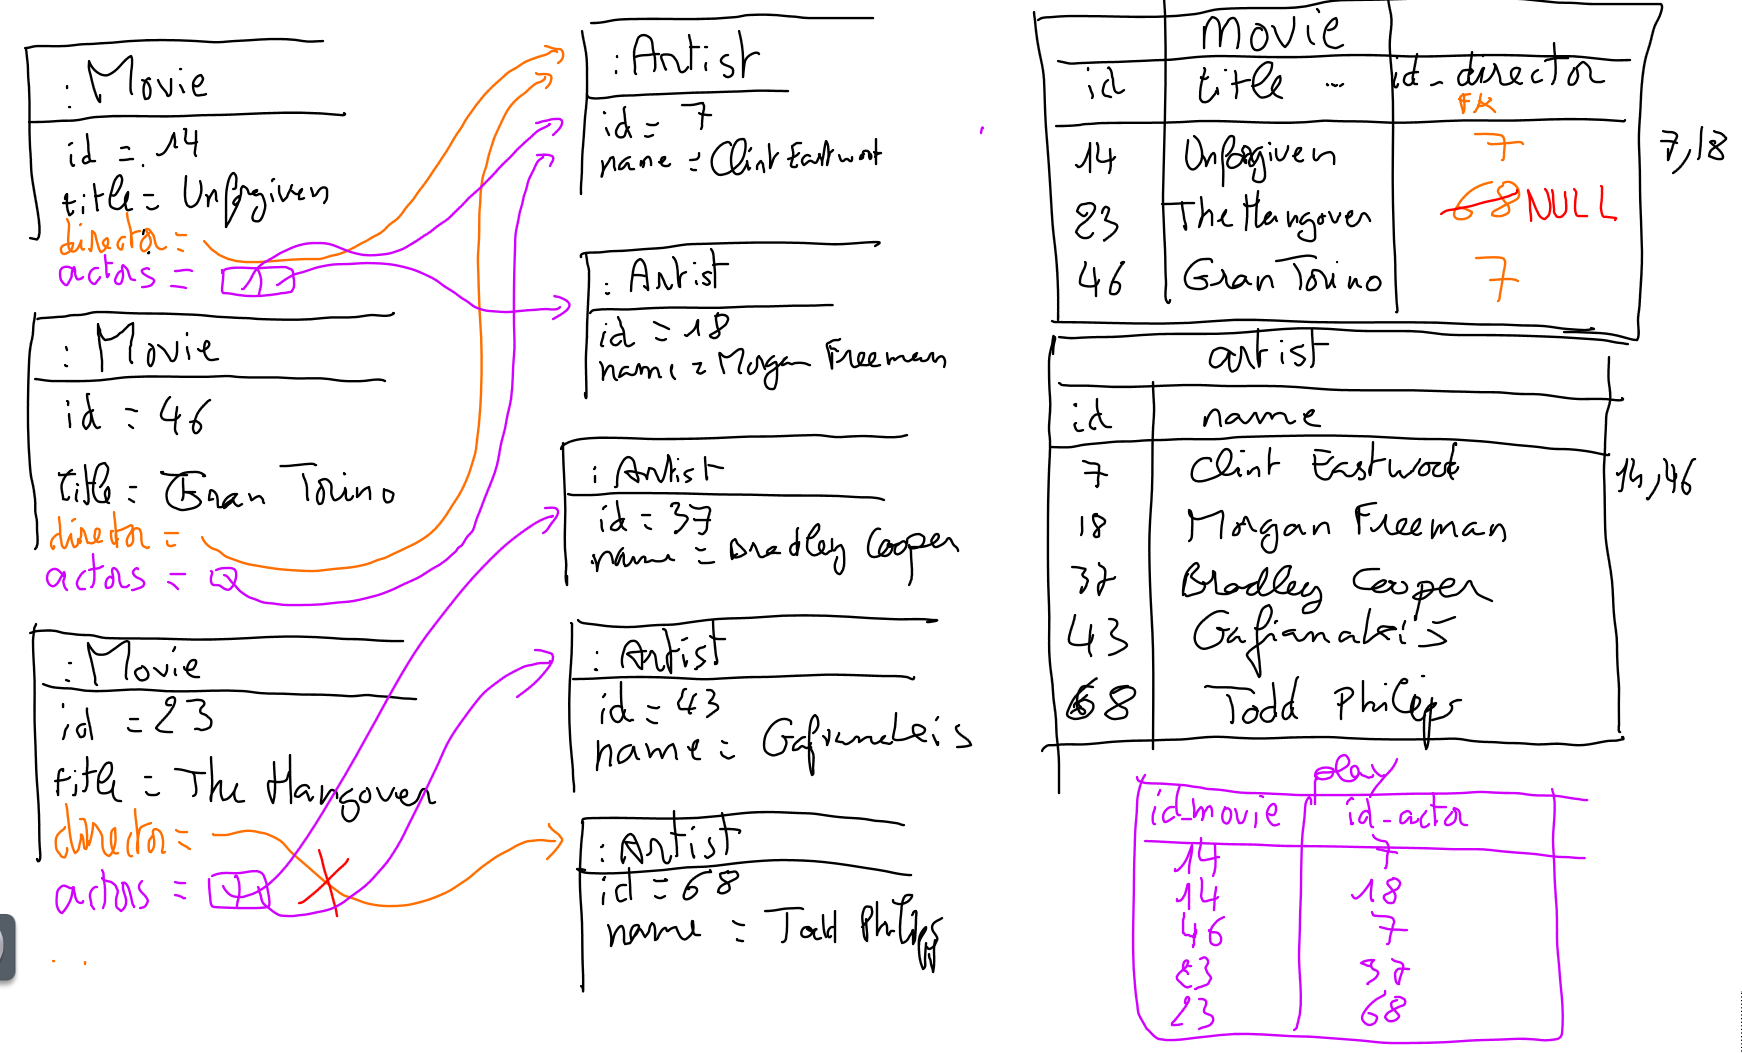 : Movie
id = 14
title = Unforgiven
director =
actors =
: Movie
id = 46
title = Gran Torino
director =
actors =
: Movie
id = 23
title = The Hangover
director =
actors =
: Artist
id = 7
name = Clint Eastwoot
: Artist
id = 18
name = Morgan Freeman
: Artist
id = 37
name = Bradley Cooper
: Artist
id = 43
name =
: Artist
id = 68
name = Todd Philips
movie
id title ... id_director
FK
14 Unforgiven 7
7,18
23 The Hangover 68 NULL
46 Gran Torino 7
artist
id name
7 Clint Eastwood
14,46
18 Morgan Freeman
37 Bradley Cooper
43 Gafianakis
68 Todd Philips
play
id_movie id_actor
14 7
14 18
46 7
23 37
23 68